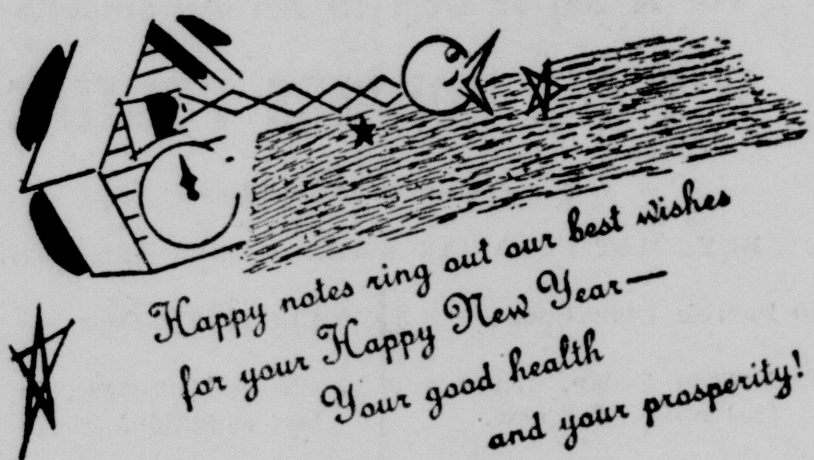 Happy notes ring out our best wishes
for your Happy New Year—
Your good health
and your prosperity!